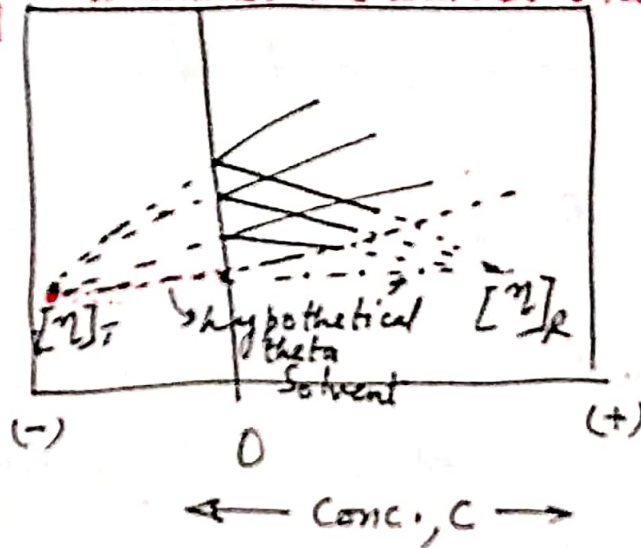 [η]T
hypothetical
theta
Solvent
[η]R
(-)
0
(+)
Conc., C